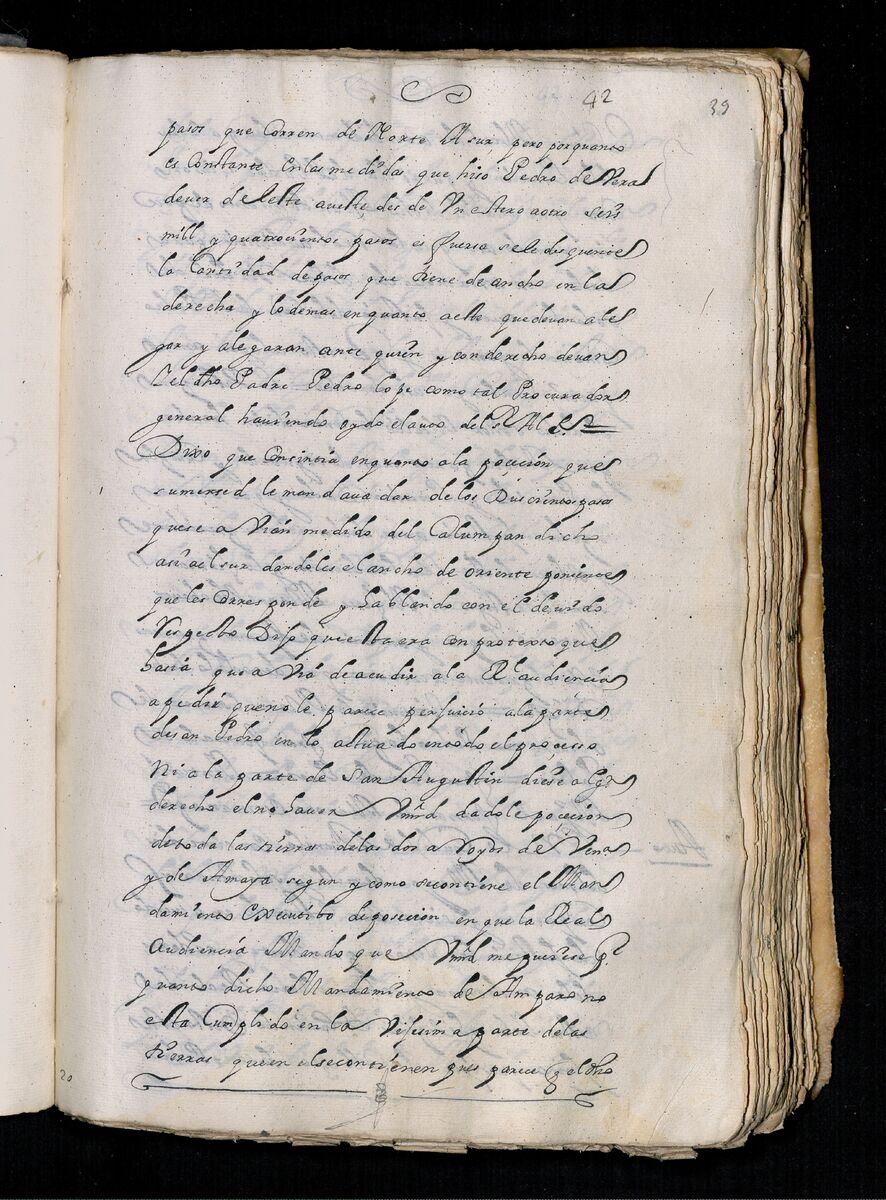 42
39
pasos que Corren de Norte A sur, pero por quanto
es Constante en las medidas que hiso Pedro de Vera
de uer de leste aueste, des de Un estero aotro seis
mill y quatrocientos pasos es fuersa se le desquente
la Cantidad de pasos que tiene de ancho en la
derecha y lo demas en quanto aeste que deuan ale
gar y alegaran ante quien y con derecho deuan
el dho Padre Pedro lope como tal Procurador
general hauiendo oydo el auto del sr Al
Dixo que Consintia en quanto ala poceción que
su merced le mandaua dar de los Duscientos pasos
que se a Vian medido del Calumpan dicho
asia el sur dandoles el ancho de oriente poniente
que les Corresponde y hablando con el deuido
Respecto Dijo que esta era con protexto que
hasia que a Via de acudir ala Rl audiencia
apedir que no le parece perjuicio ala parte
de san Pedro en lo actuado en todo el processo
Ni ala parte de San Augustin diese algn
derecho el no hauer Vmd dadole poceción
de toda las tierras de las dos a Voyos de Vera
y de Amaya segun y como se contiene el Man
damiento Executibo de posecion en que la Real
Audiencia Mando que Vmd me pusiese pr
quanto dicho Mandamiento de Amparo no
esta Cumplido en la Vissima parte de las
tierras que en el se contienen pues parece el dho
20